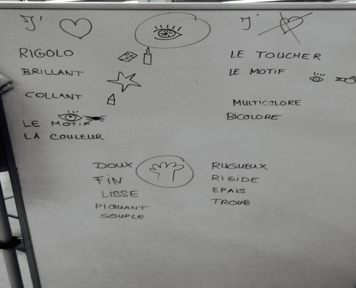 J'
RIGOLO
BRILLANT
COLLANT
LE MOTIF
LA COULEUR
J'
LE TOUCHER
LE MOTIF
MULTICOLORE
BICOLORE
DOUX
FIN
LISSE
PIQUANT
SOUPLE
RUGUEUX
RIGIDE
EPAIS
TROUE